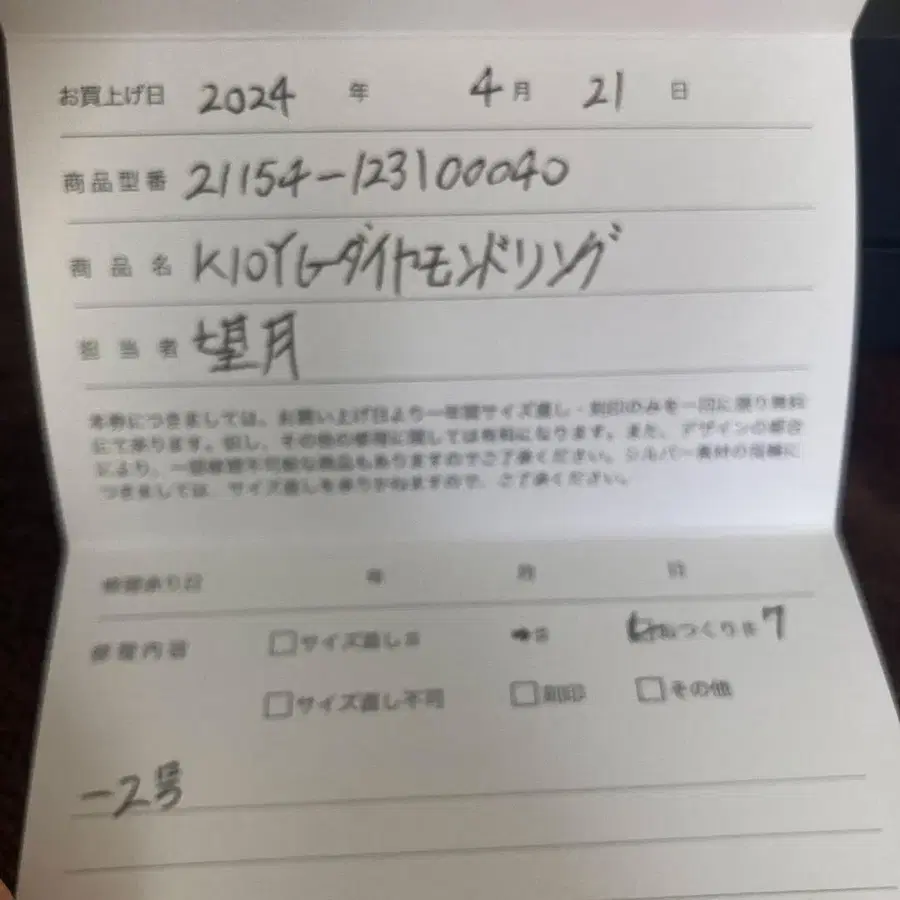 お買上げ日 2024 年 4月 21 日
商品型番 21154-123100040
商品名 K10YGダイヤモンドリング
担当者 望月
本券につきましては、お買い上げ日より一年間サイズ直し・刻印のみを一回に限り無料
にて承ります。但し、その他の修理に関しては有料になります。また、デザインの都合
により、一部修理不可能な商品もありますのでご了承ください。シルバー素材の指輪に
つきましては、サイズ直しを承りかねますので、ご了承ください。
修理承り日 年 月 日
修理内容 □サイズ直し # 号 つくり# 7
□サイズ直し不可 □刻印 □その他
-2号